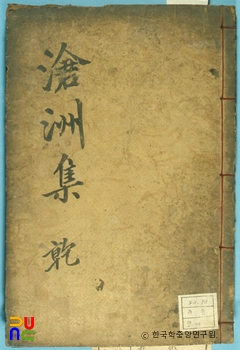 滄洲集 乾
© 한국학중앙연구원